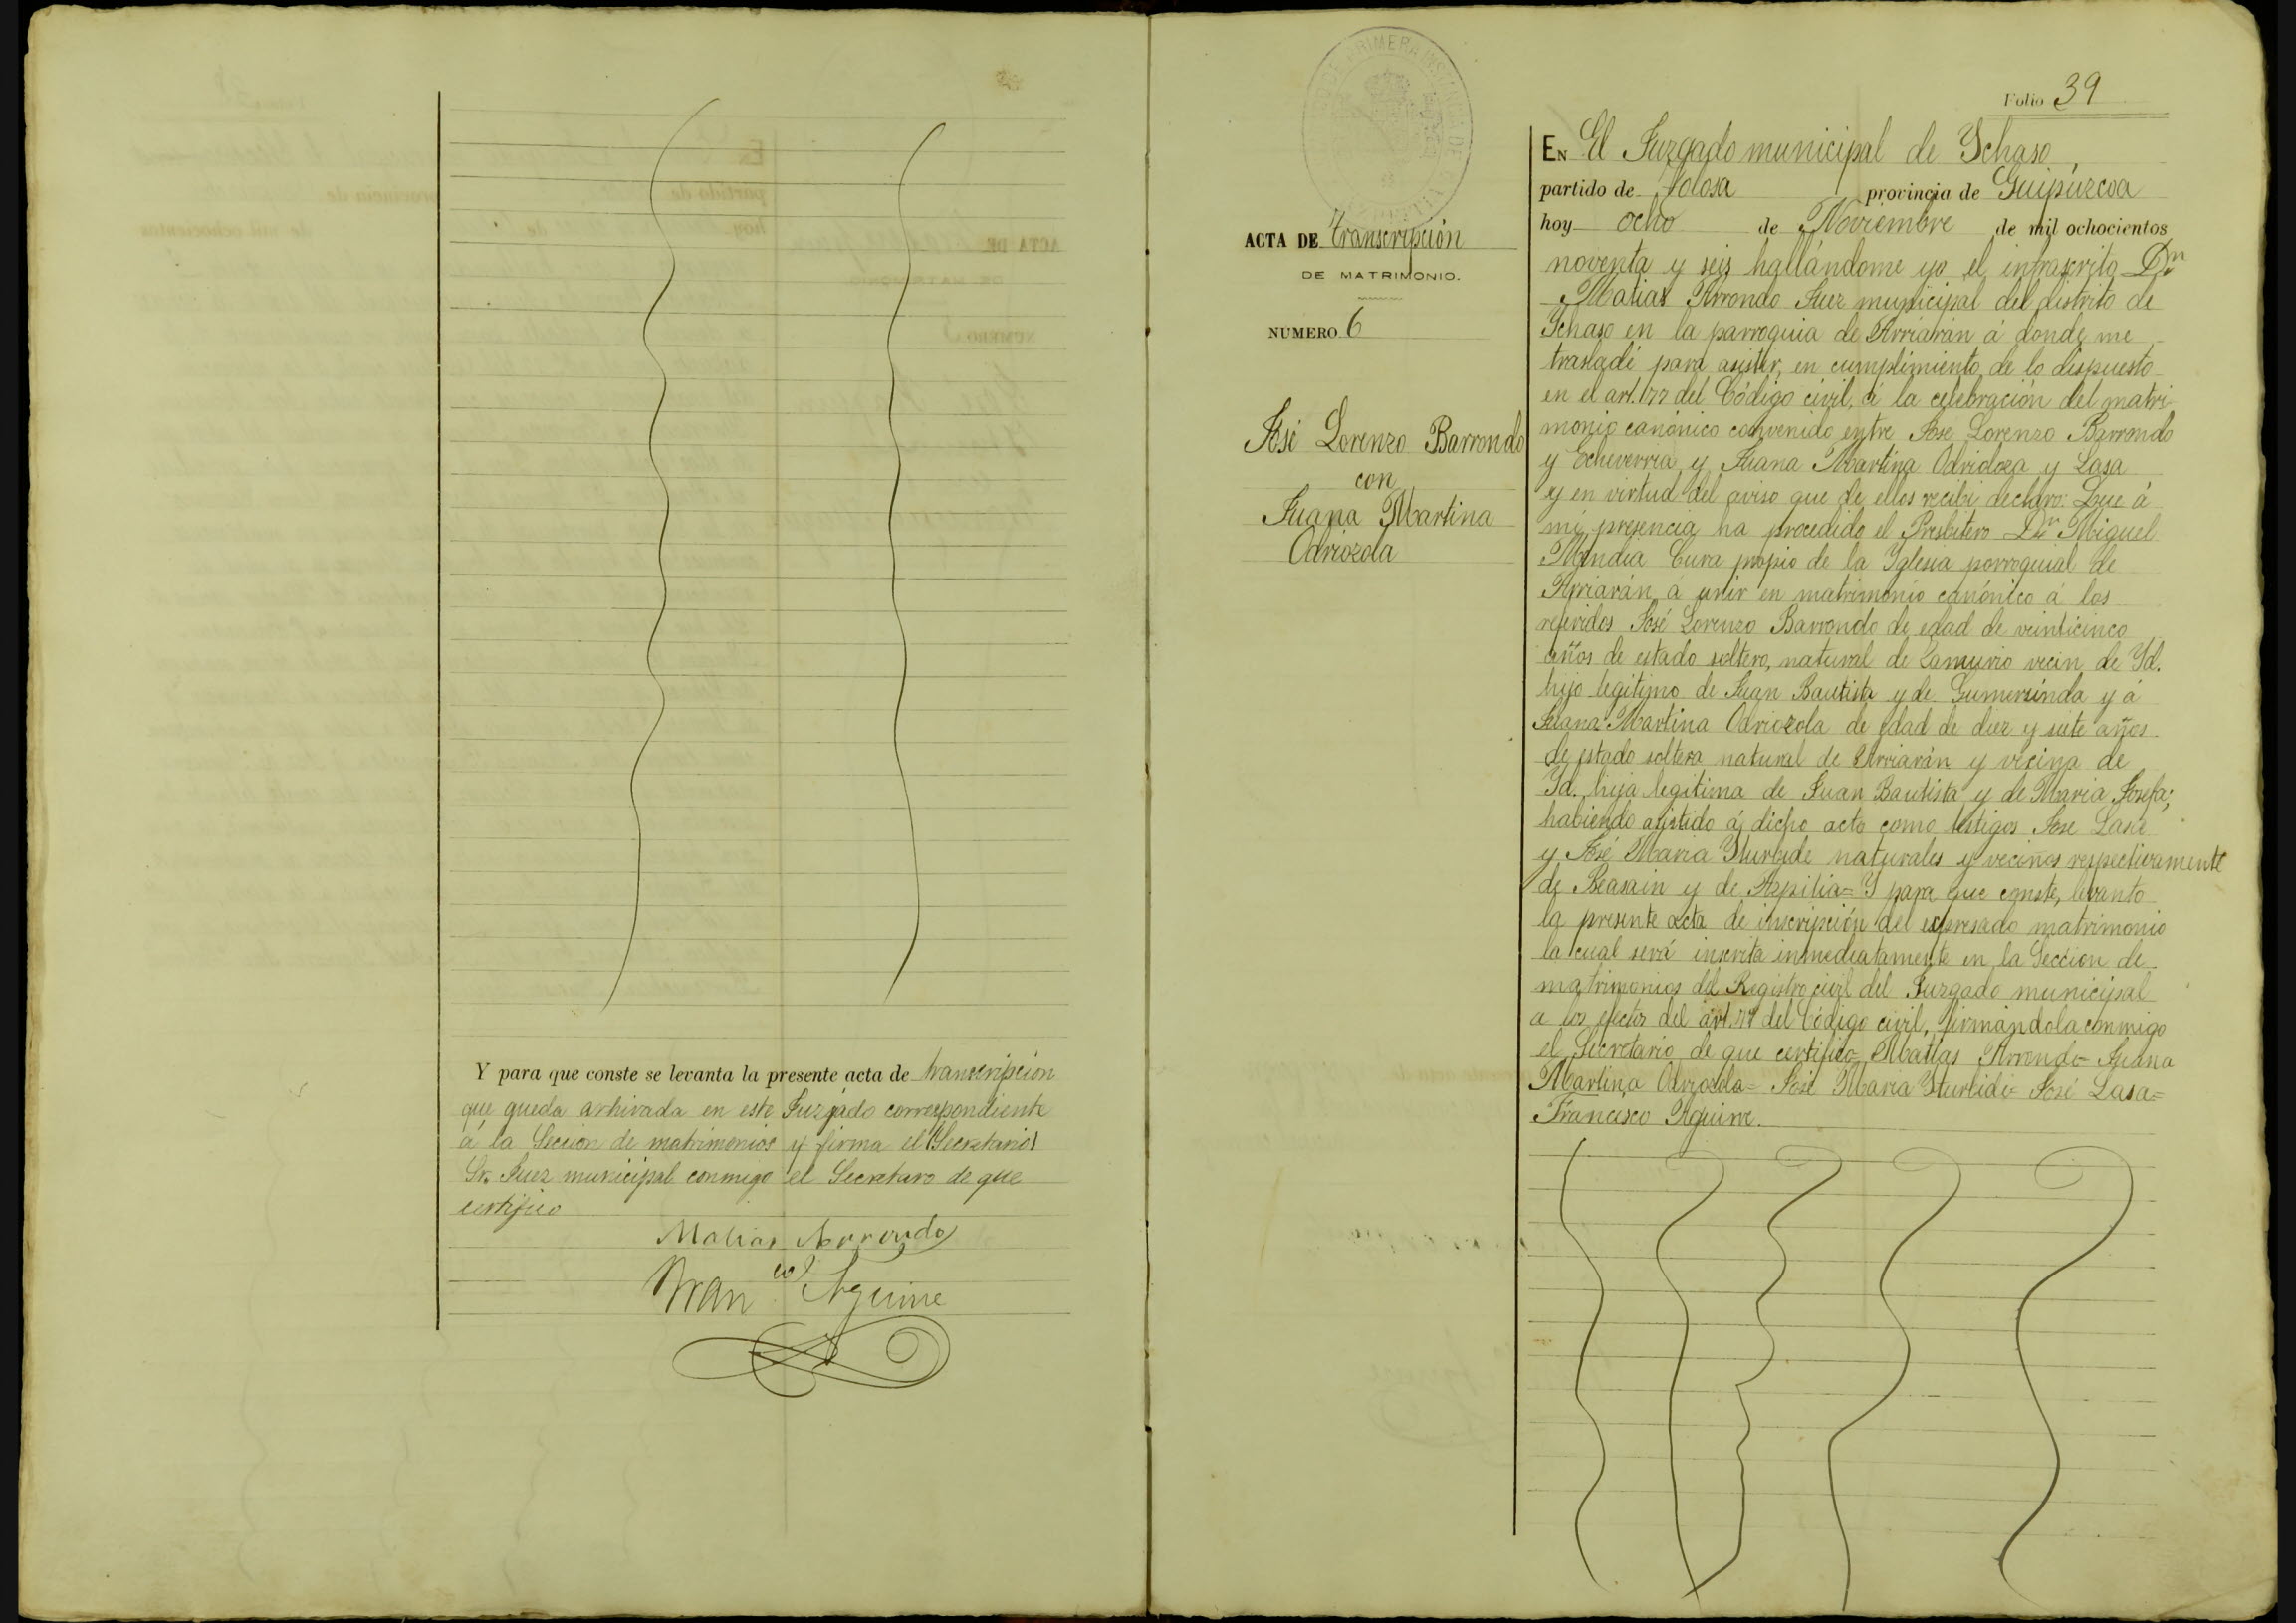 Y para que conste se levanta la presente acta de transcripción
que queda arhivada en este Juzgado correspondiente
á la Sección de matrimonios y firma el (Secretario)
Sr. Juez municipal conmigo el Secretaro de que
certifico
Matias Arrondo
Franco Aguirre
Folio 39
ACTA DE transcripción
DE MATRIMONIO.
NUMERO 6
José Lorenzo Barrondo
con
Juana Martina
Odriozola
EN El Juzgado municipal de Ychaso,
partido de Tolosa provincia de Guipúzcoa
hoy ocho de Noviembre de mil ochocientos
noventa y seis hallándome yo el infrascrito Dn
Matias Arrondo Juez municipal del distrito de
Ychaso en la parroquia de Arriarán á donde me
trasladé para asistir, en cumplimiento de lo dispuesto
en el art. 77 del Código civil, á la celebración del matri-
monio canónico convenido entre Jose Lorenzo Barrondo
y Echeverria y Juana Martina Odridoza y Lasa
y en virtud del aviso que de ellos recibi declaro: Que á
mi presencia ha procedido el Presbitero Dn Miguel
Mendia Cura propio de la Yglesia parroquial de
Arriarán á unir en matrimonio canónico á los
referidos José Lorenzo Barrondo de edad de veinticinco
años de estado soltero, natural de vecin de Yd.
hijo legítimo de Juan Bautista y de Gumersinda y á
Juana Martina Odriozola de edad de diez y siete años
de estado soltera natural de Arriarán y vecina de
Yd. hija legitima de Juan Bautista y de Maria Josefa;
habiendo asistido á dicho acto como testigos Jose Lasa
y José Maria Yturbide naturales y vecinos respectivamente
de Beasain y de Azpilia= Y para que conste, levanto
la presente acta de inscripción del expresado matrimonio
la cual será inscrita inmediatamente en la Sección de
matrimonios del Registro civil del Juzgado municipal
a los efectos del art. 77 del Código civil, firmándola conmigo
el Secretario de que certifico= Matías Arrondo= Juana
Martina Odriozola= José Maria Yturbide= José Lasa=
Francisco Aguirre.